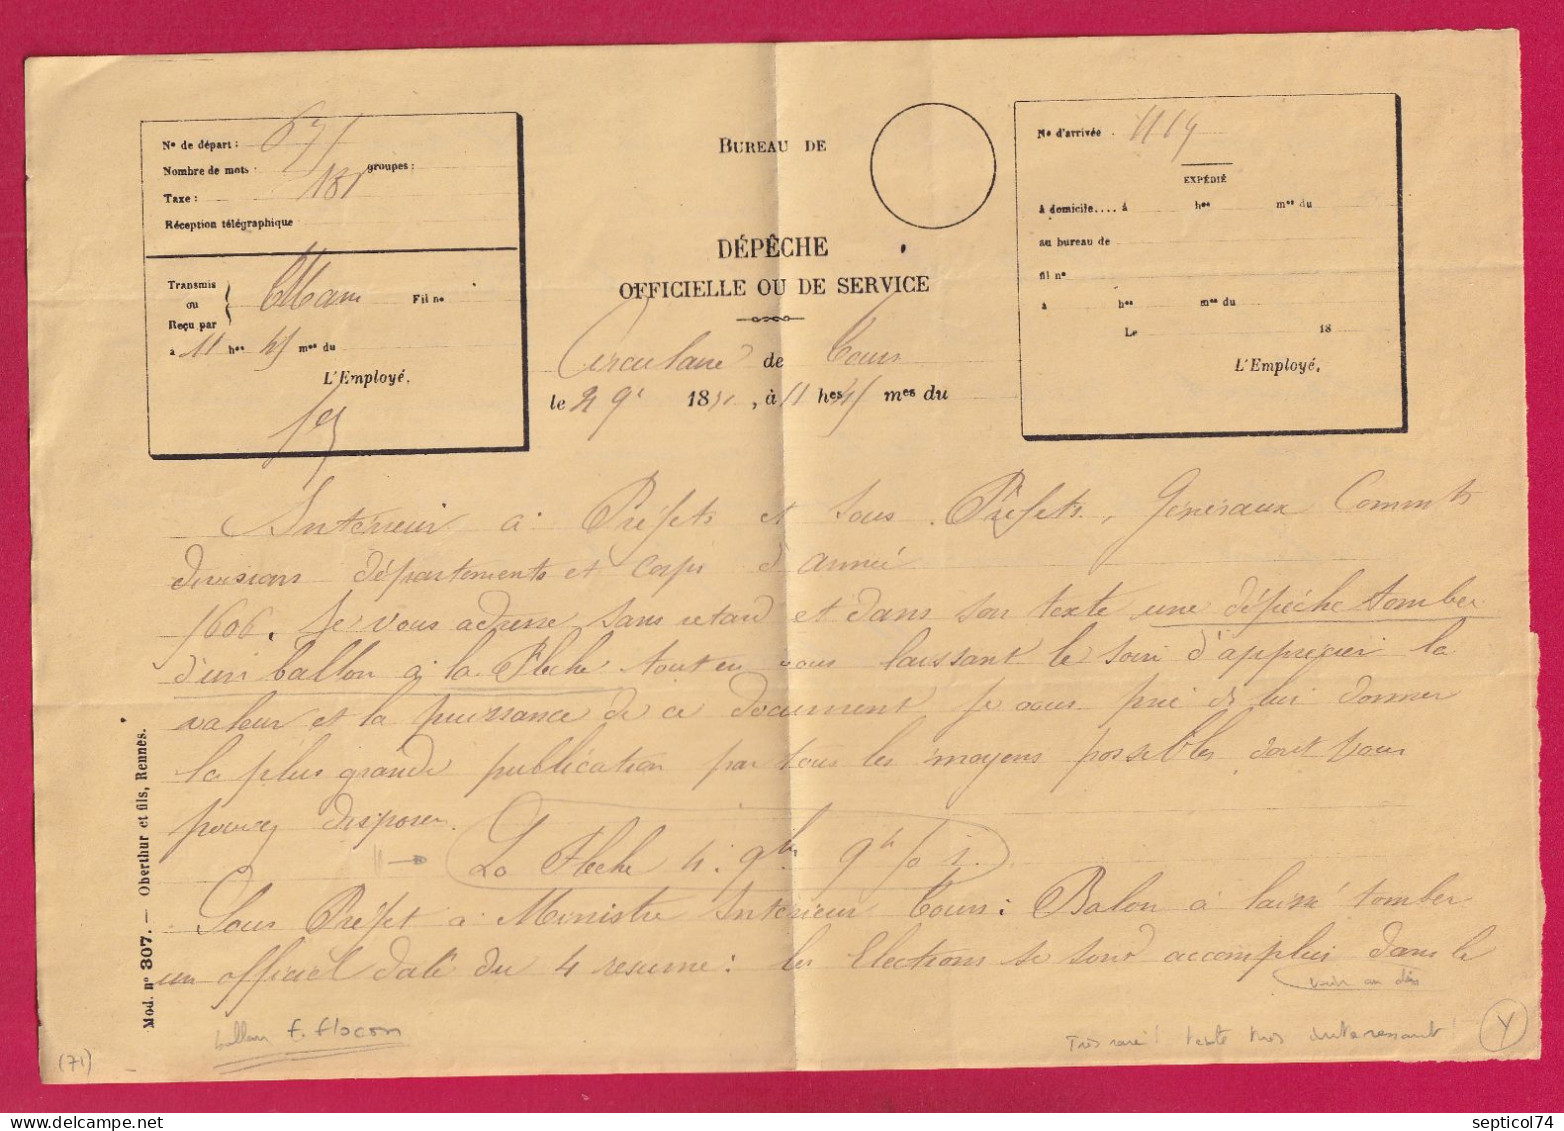 N° de départ :
Nombre de mots : groupes :
Taxe :
Réception télégraphique
Transmis
ou
Reçu par
Fil n°
à 11 hes 45 mes du
L'Employé,
BUREAU DE
DÉPÊCHE
OFFICIELLE OU DE SERVICE
Circulaire de Tours
le 18 , à 11 hes 45 mes du
N° d'arrivée
EXPÉDIÉ
à domicile.... à hes mes du
au bureau de
fil n°
à hes mes du
Le 18
L'Employé,
Intérieur à Préfets et sous Préfets, Généraux Commts
divisions départements et corps d'armée
1606. Je vous adresse sans retard et dans son texte une dépêche tombée
d'un ballon à la Flèche tout en vous laissant le soin d'apprécier la
valeur et la puissance de ce document je vous prie de lui donner
la plus grande publication par tous les moyens possibles dont vous
pouvez disposer.
La Flèche 4. 9bre 9h
Sous Préfet à Ministre Intérieur Tours : Balon à laissé tomber
un officiel daté du 4 résumé : les Elections se sont accomplies dans le
ballon F. Flocon
Très rare ! texte très intéressant !
Y
(71)
Mod. n° 307. — Oberthur et fils, Rennes.
septicol74